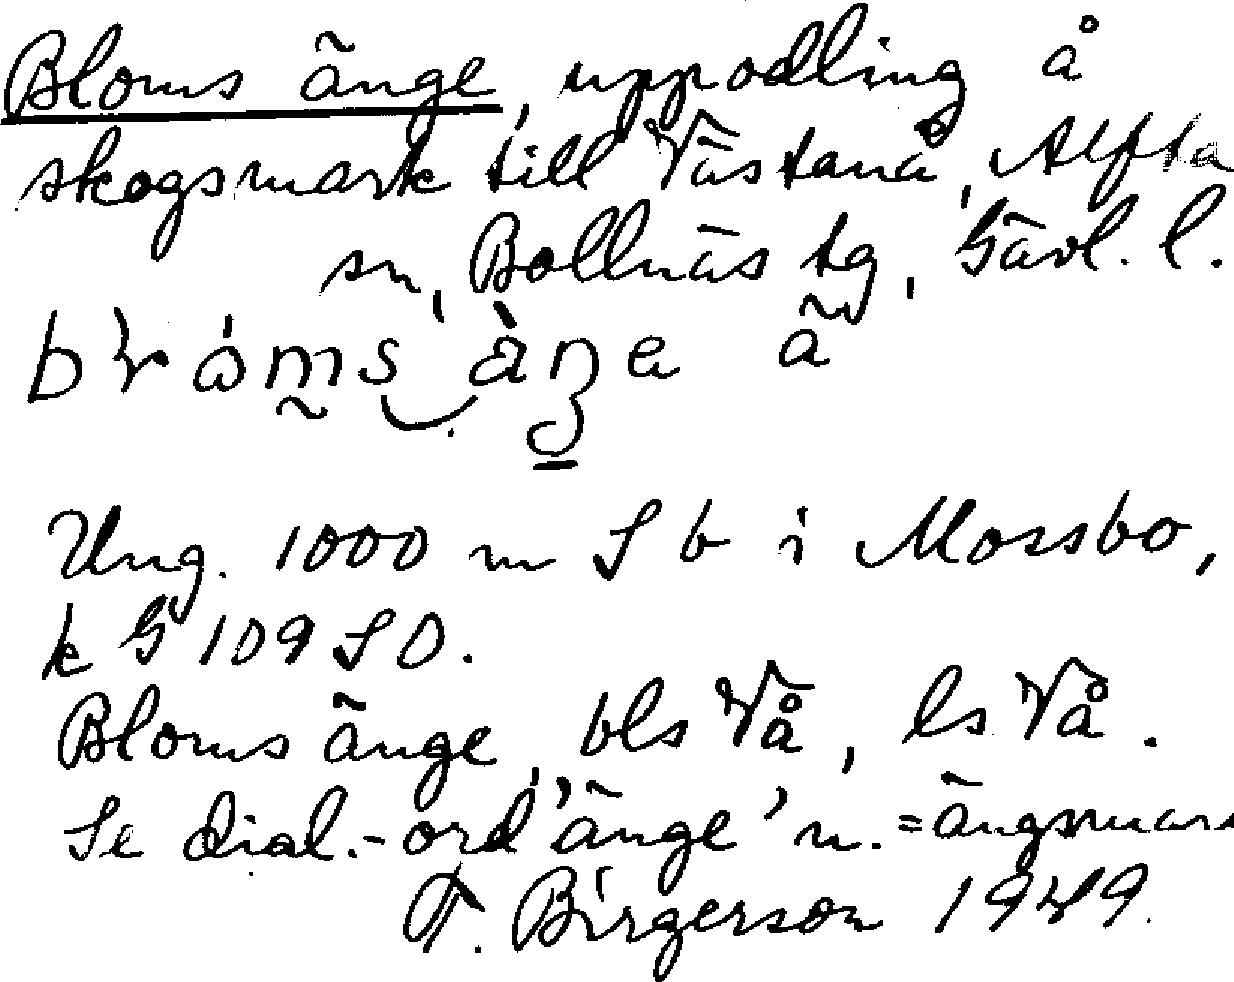 Bloms änge, uppodling å
skogsmark till Västanå, Alfta
sn, Bollnäs tg, Gävl. l.
Ung. 1000 m S b i Mossbo,
k G 109 SO.
Bloms änge, bls Vå, ls Vå.
Se dial.-ord 'änge' n. = ängsmark
T. Birgerson 1949.